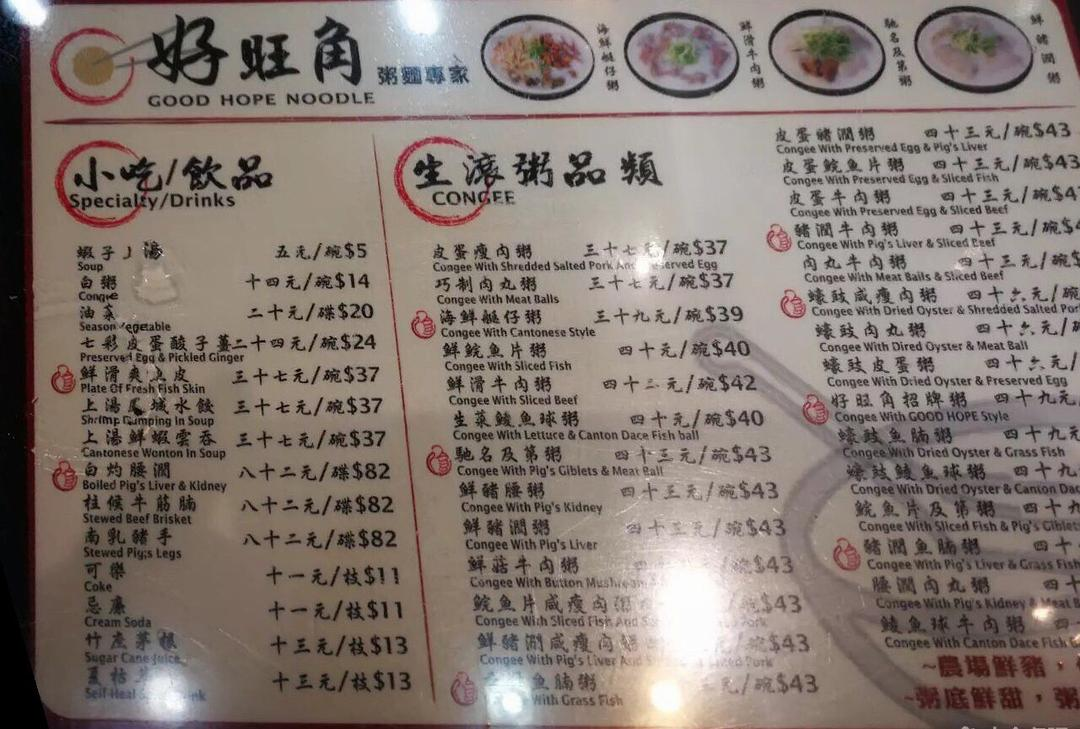 好旺角 粥麵專家
GOOD HOPE NOODLE
海鮮艇仔粥
鮮滑牛肉粥
馳名及第粥
鮮豬潤粥
小吃/飲品
Specialty/Drinks
蝦子 湯 五元/碗$5
Soup
白粥 十四元/碗$14
Congie
油菜 二十元/碟$20
Season Vegetable
七彩皮蛋酸子薑二十四元/碗$24
Preserved Egg & Pickled Ginger
鮮滑爽魚皮 三十七元/碗$37
Plate Of Fresh Fish Skin
上湯鳳城水餃 三十七元/碗$37
Shrimp Dumping In Soup
上湯鮮蝦雲吞 三十七元/碗$37
Cantonese Wonton In Soup
白灼腰潤 八十二元/碟$82
Boiled Pig's Liver & Kidney
柱候牛筋腩 八十二元/碟$82
Stewed Beef Brisket
南乳豬手 八十二元/碟$82
Stewed Pig;s Legs
可樂 十一元/枝$11
Coke
忌廉 十一元/枝$11
Cream Soda
竹庶茅根 十三元/枝$13
Sugar Cane Juice
夏枯 十三元/枝$13
Self Heal
生滾粥品類
CONGEE
皮蛋瘦肉粥 三十七元/碗$37
Congee With Shredded Salted Pork And Preserved Egg
巧制肉丸粥 三十七元/碗$37
Congee With Meat Balls
海鮮艇仔粥 三十九元/碗$39
Congee With Cantonese Style
鮮鯇魚片粥 四十元/碗$40
Congee With Sliced Fish
鮮滑牛肉粥 四十二元/碗$42
Congee With Sliced Beef
生菜鯪魚球粥 四十元/碗$40
Congee With Lettuce & Canton Dace Fish ball
馳名及第粥 四十三元/碗$43
Congee With Pig's Giblets & Meat Ball
鮮豬腰粥 四十三元/碗$43
Congee With Pig's Kidney
鮮豬潤粥 四十三元/碗$43
Congee With Pig's Liver
鮮菇牛肉粥 四十三元/碗$43
Congee With Button Mushroom
鯇魚片咸瘦肉粥 碗$43
Congee With Sliced Fish And Pork
鮮豬潤咸瘦肉粥 元/碗$43
Congee With Pig's Liver And Salted Pork
魚腩粥 元/碗$43
With Grass Fish
皮蛋豬潤粥 四十三元/碗$43
Congee With Preserved Egg & Pig's Liver
皮蛋鯇魚片粥 四十三元/碗$43
Congee With Preserved Egg & Sliced Fish
皮蛋牛肉粥 四十三元/碗$4
Congee With Preserved Egg & Sliced Beef
豬潤牛肉粥 四十三元/碗$4
Congee With Pig's Liver & Sliced Beef
肉丸牛肉粥 四十三元/碗$
Congee With Meat Balls & Sliced Beef
蠔豉咸瘦肉粥 四十六元/碗
Congee With Dried Oyster & Shredded Salted Por
蠔豉肉丸粥 四十六元/
Congee With Dired Oyster & Meat Ball
蠔豉皮蛋粥 四十六元/
Congee With Dried Oyster & Preserved Egg
好旺角招牌粥 四十九元
Congee With GOOD HOPE Style
蠔豉魚腩粥 四十九元
Congee With Dried Oyster & Grass Fish
蠔豉鯪魚球粥 四十九
Congee With Dried Oyster & Canton Dac
鯇魚片及第粥 四十九
Congee With Sliced Fish & Pig's Giblets
豬潤魚腩粥 四十
Congee With Pig's Liver & Grass Fish
腰潤肉丸粥 四十
Congee With Pig's Kidney & Meat B
鯪魚球牛肉粥 四十
Congee With Canton Dace Fish
~農場鮮豬，
~粥底鮮甜，粥